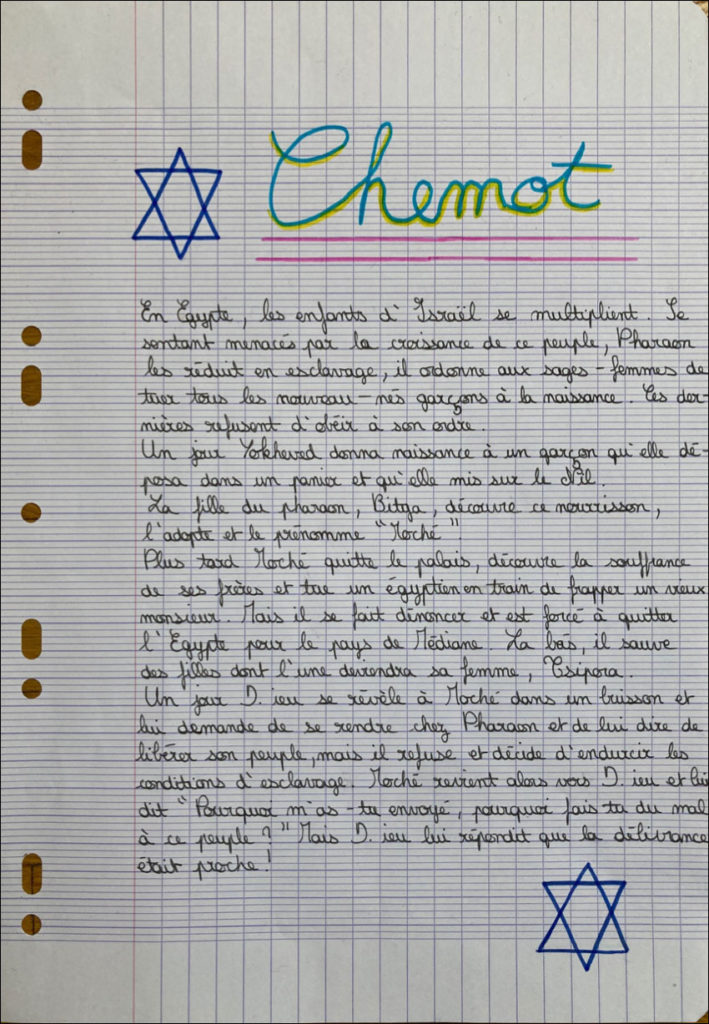 Chemot
En Egypte, les enfants d'Israël se multiplient. Se
sentant menacés par la croissance de ce peuple, Pharaon
les réduit en esclavage, il ordonne aux sages-femmes de
tuer tous les nouveau-nés garçons à la naissance. Ces der-
nières refusent d'obéir à son ordre.
Un jour Yokheved donna naissance à un garçon qu'elle dé-
posa dans un panier et qu'elle mis sur le Nil.
La fille du pharaon, Bitya, découvre ce nourrisson,
l'adopte et le prénomme "Moché".
Plus tard Moché quitte le palais, découvre la souffrance
de ses frères et tue un égyptien en train de frapper un vieux
monsieur. Mais il se fait dénoncer et est forcé à quitter
l'Egypte pour le pays de Médiane. La bás, il sauve
des filles dont l'une deviendra sa femme, Tsipora.
Un jour D.ieu se révèle à Moché dans un buisson et
lui demande de se rendre chez Pharaon et de lui dire de
libérer son peuple, mais il refuse et décide d'endurcir les
conditions d'esclavage. Moché revient alors vers D.ieu et lui
dit "Pourquoi m'as-tu envoyé, pourquoi fais tu du mal
à ce peuple ?" Mais D.ieu lui répondit que la délivrance
était proche !